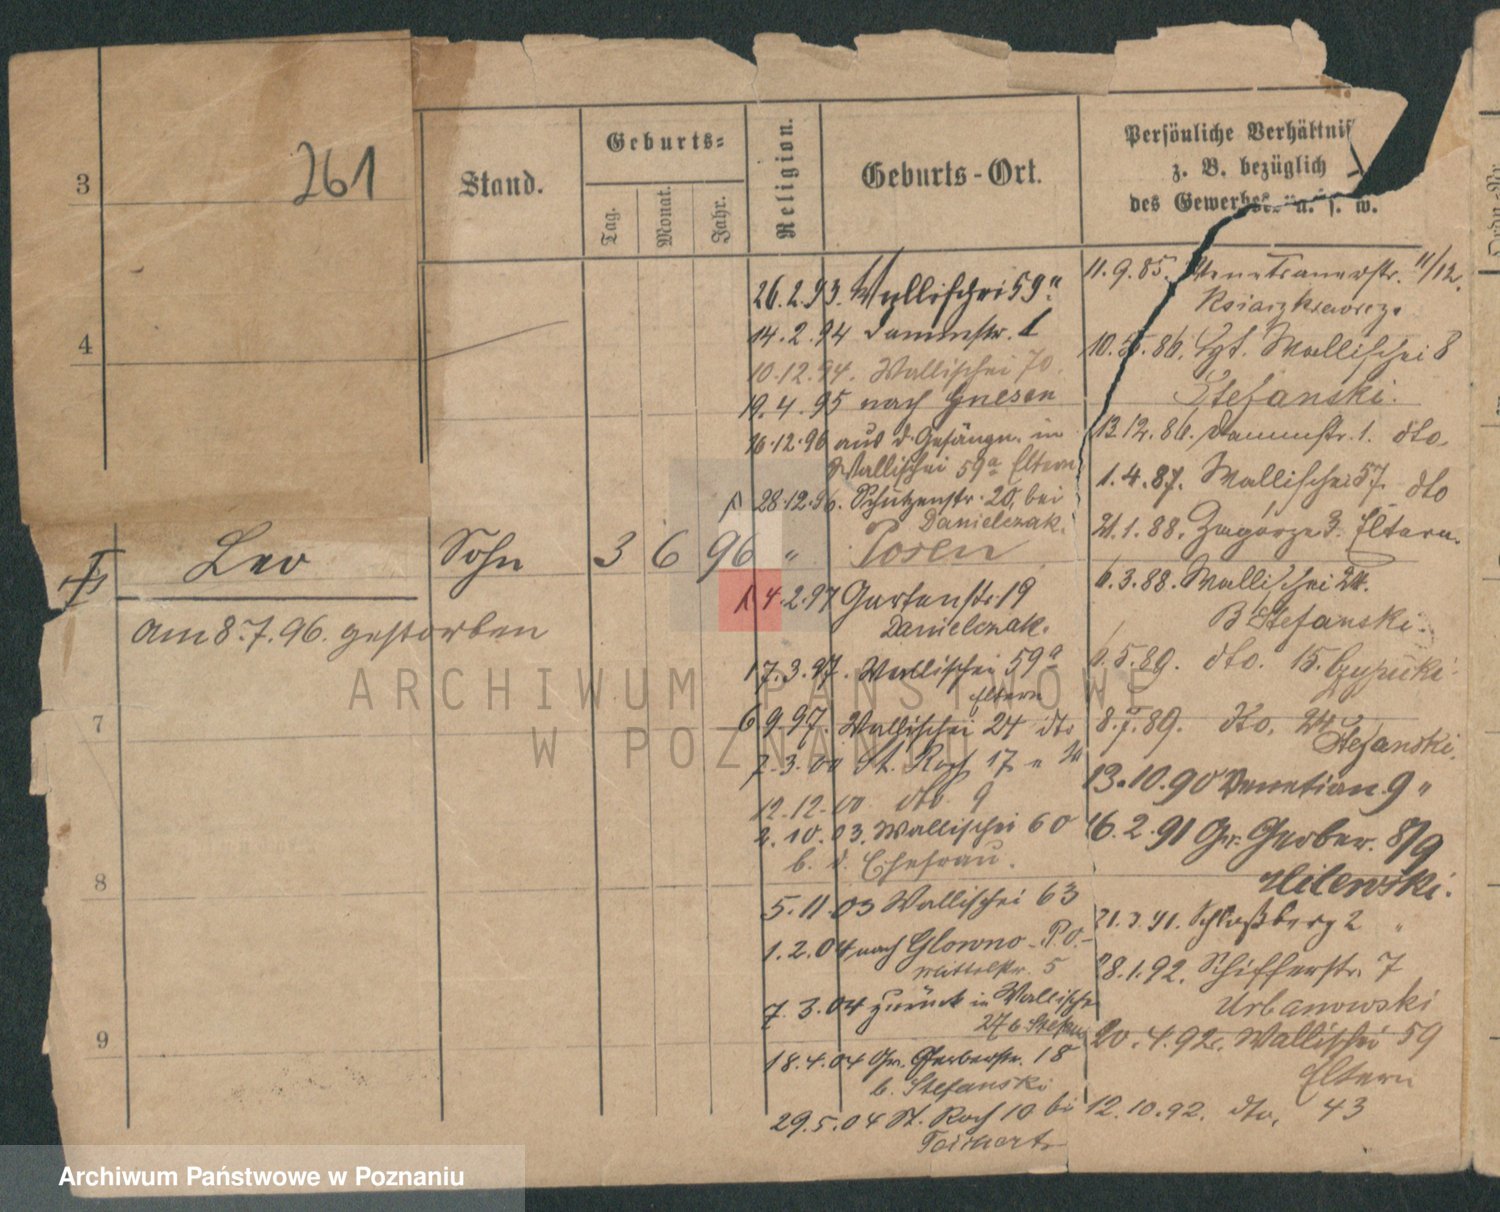 261
3
4
7
8
9
Stand.
Geburts-
Tag.
Monat.
Jahr.
Religion.
Geburts-Ort.
Persönliche Verhältnis
z. B. bezüglich
des Gewerbes u. s. w.
Leo Sohn 3 6 96 " Posen
am 8.7.96. gestorben
26.2.93. Wallischei 59a
14.2.94 Dammstr. 1
10.12.94. Wallischei 70.
19.4.95 nach Gnesen
16.12.96 aus d. Gefängn. in
Wallischei 59a Eltern
28.12.96. Schützenstr. 20, bei
Danielczak.
4.2.97 Gartenstr. 19
Danielczak.
17.3.97. Wallischei 59a
Eltern
6.9.97. Wallischei 24 dto
7.3.00 St. Roch 17
12.12.00 dto 9
2.10.03. Wallischei 60
b. d. Ehefrau.
5.11.03 Wallischei 63
1.2.04 nach Glowno - Po.-
Mittelstr. 5
7.3.04 zurück in Wallischei
27 b. Stefan
18.4.04 Gr. Gerberstr. 18
b. Stefanski
29.5.04 St. Roch 10 bi
11.9.85. Venetianerstr. 11/12.
Ksiazkiewicz.
10.5.86. Wallischei 8
Stefanski.
13.12.86. Dammstr. 1. dto.
1.4.87. Wallischei 57. dto
21.1.88. Zagorze 3. Eltern.
6.3.88. Wallischei 24.
B Stefanski.
6.5.89. dto. 15.
8.7.89. dto. 24
Stefanski.
13.10.90 Venetian. 9 "
16.2.91 Gr. Gerber. 8/9
Hilewski.
21.3.91. Schloßberg 2 "
28.1.92. Schifferstr. 7
Urbanowski
20.4.92. Wallischei 59
Eltern
12.10.92. dto. 43
ARCHIWUM PAŃSTWOWE
W POZNANIU
Archiwum Państwowe w Poznaniu